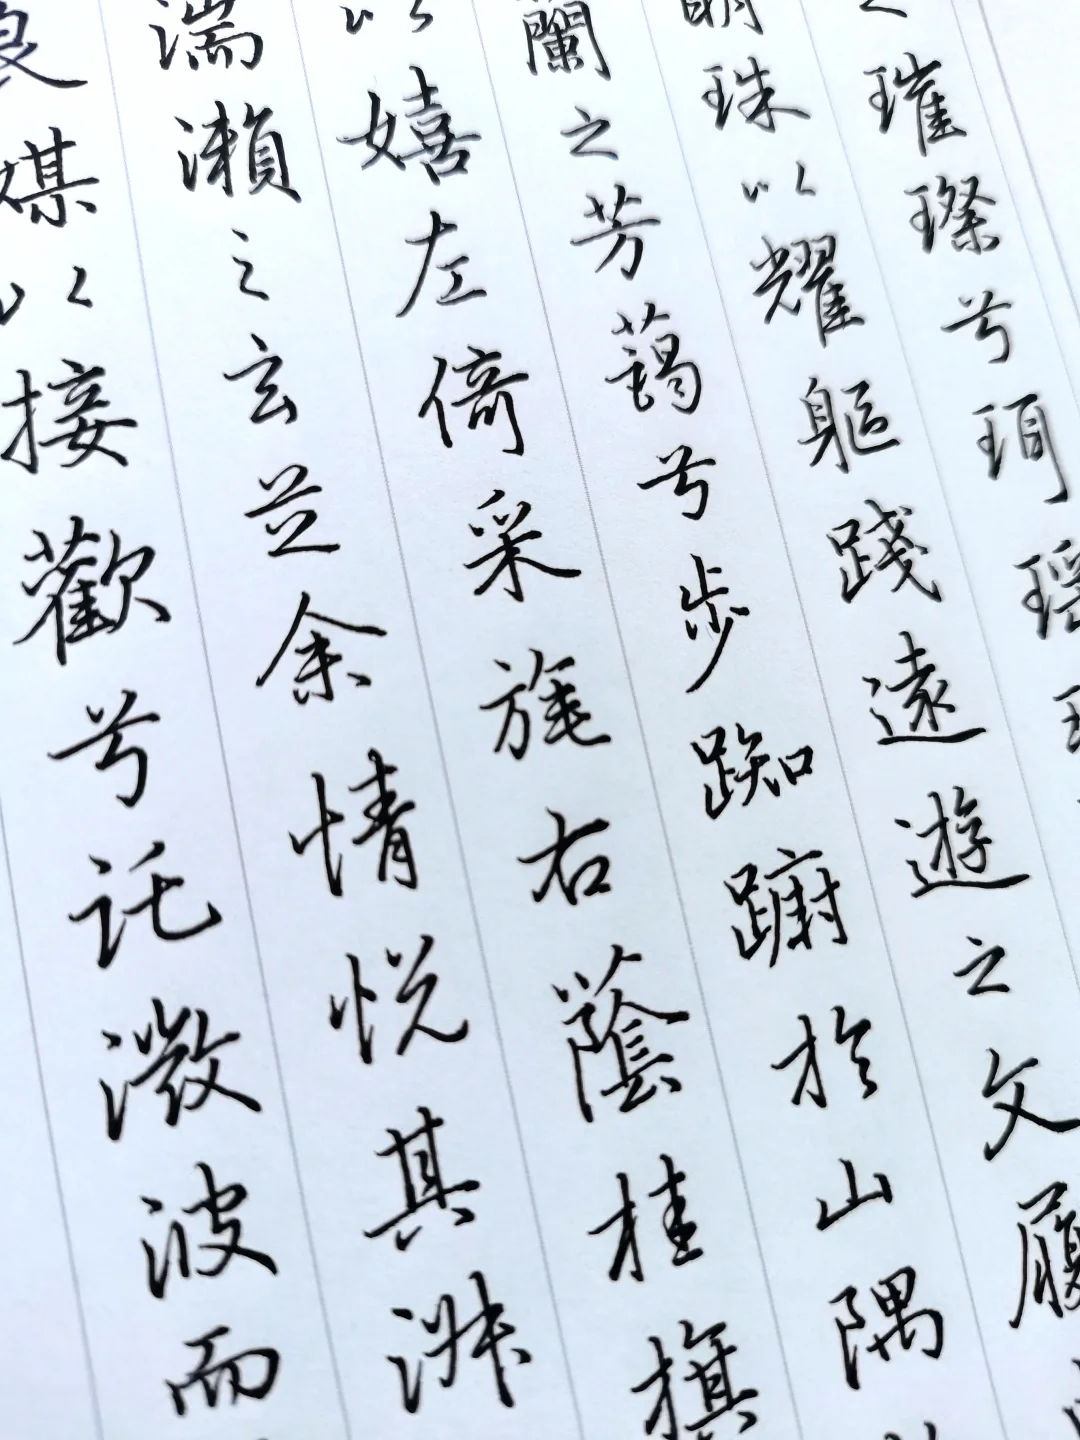 之璀璨兮珥瑤
明珠以耀軀踐遠遊之文履
蘭之芳藹兮步踟躕於山隅
以嬉左倚采旄右蔭桂旗
湍瀨之玄芝余情悅其淑
良媒以接歡兮託微波而